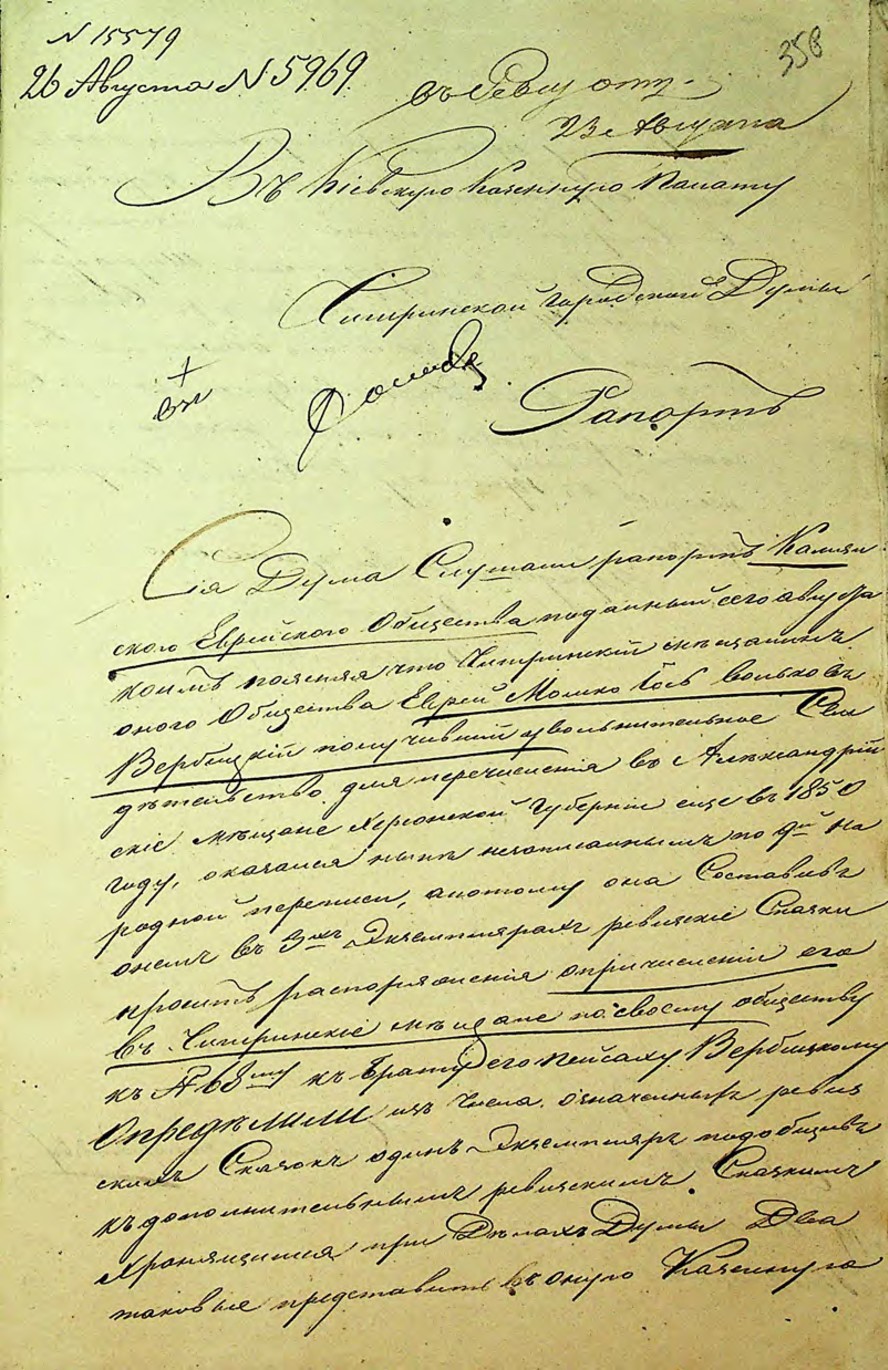 N 15579
26 Августа N 5969.
358
въ Ревиз отд.
23 Августа
Въ Кіевскую Казенную Палату
Чигринской городской Думы
Рапортъ
Сія Дума Слушали рапортъ Камян
ского Еврейского Общества поданный сего августа
коимъ поясняя что Чигринскій мѣщанинъ
оного Общества Еврей Мошко Іось Вольковъ
Вербицкій получившій увольнительное Сви
дѣтельство для перечисленія въ Александрій
скіе мѣщане Херсонской Губерніи еще въ 1850
году, оказался нынѣ незаписаннымъ по 9й на
родной переписи, апотому она Составивъ
онемъ въ 3хъ Экземплярахъ ревизскіе Сказки
проситъ распоряженія опричисленіи его
въ Чигринскіе мѣщане по своему обществу
къ N 68му къ брату его Пейсаху Вербицкому
Опредѣлили изъ числа означенныхъ ревиз
скихъ Сказокъ одинъ Экземпляръ подобщивъ
къ дополнительнымъ ревизскимъ Сказкамъ
Хранящимся при Дѣлахъ Думы Два
таковые представить въ оную Казенную